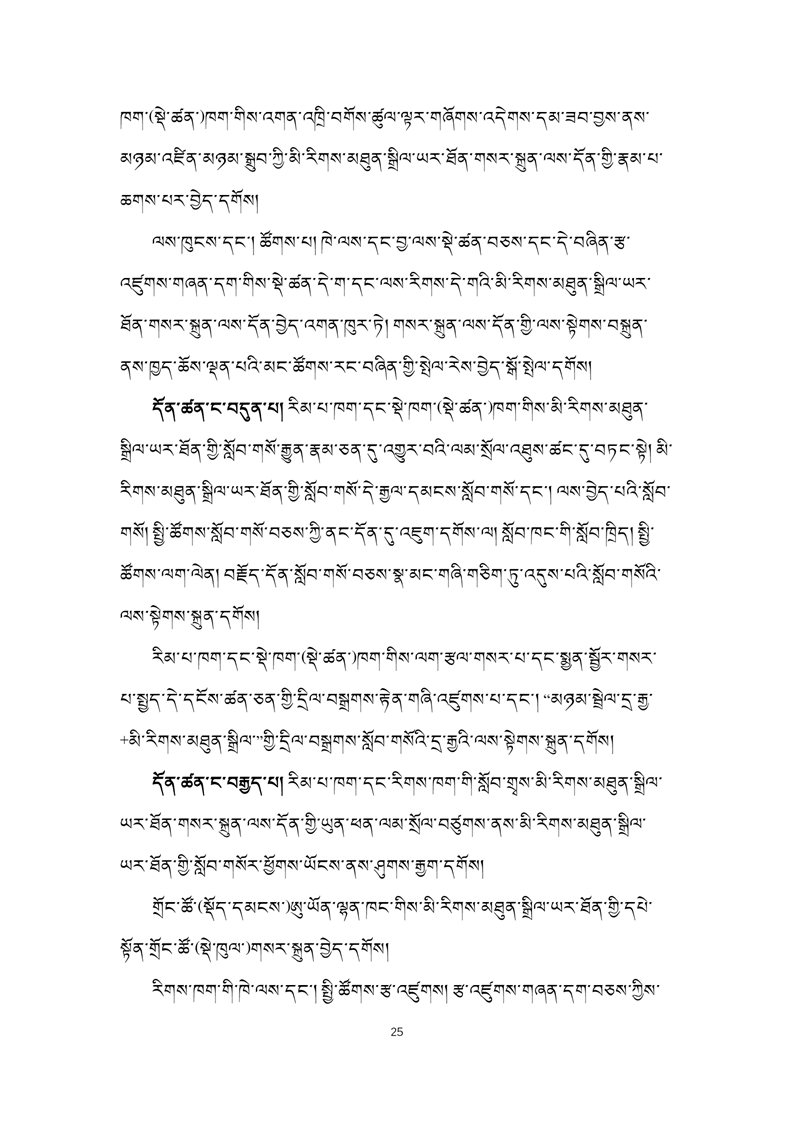 ཁག་(སྡེ་ཚན་)ཁག་གིས་འགན་འཁྲི་བགོས་ཚུལ་ལྟར་གཞོགས་འདེགས་དམ་ཟབ་བྱས་ནས་
མཉམ་འཛིན་མཉམ་སྒྲུབ་ཀྱི་མི་རིགས་མཐུན་སྒྲིལ་ཡར་ཐོན་གསར་སྐྲུན་ལས་དོན་གྱི་རྣམ་པ་
ཆགས་པར་བྱེད་དགོས།
ལས་ཁུངས་དང་། ཚོགས་པ། ཁེ་ལས་དང་བྱ་ལས་སྡེ་ཚན་བཅས་དང་དེ་བཞིན་རྩ་
འཛུགས་གཞན་དག་གིས་སྡེ་ཚན་དེ་ག་དང་ལས་རིགས་དེ་གའི་མི་རིགས་མཐུན་སྒྲིལ་ཡར་
ཐོན་གསར་སྐྲུན་ལས་དོན་བྱེད་འགན་ཁུར་ཏེ། གསར་སྐྲུན་ལས་དོན་གྱི་ལས་སྟེགས་བསྐྲུན་
ནས་ཁྱད་ཆོས་ལྡན་པའི་མང་ཚོགས་རང་བཞིན་གྱི་སྤེལ་རེས་བྱེད་སྒོ་སྤེལ་དགོས།
དོན་ཚན་ང་བདུན་པ། རིམ་པ་ཁག་དང་སྡེ་ཁག་(སྡེ་ཚན་)ཁག་གིས་མི་རིགས་མཐུན་
སྒྲིལ་ཡར་ཐོན་གྱི་སློབ་གསོ་རྒྱུན་རྣམ་ཅན་དུ་འགྱུར་བའི་ལམ་སྲོལ་འཐུས་ཚང་དུ་བཏང་སྟེ། མི་
རིགས་མཐུན་སྒྲིལ་ཡར་ཐོན་གྱི་སློབ་གསོ་དེ་རྒྱལ་དམངས་སློབ་གསོ་དང་། ལས་བྱེད་པའི་སློབ་
གསོ། སྤྱི་ཚོགས་སློབ་གསོ་བཅས་ཀྱི་ནང་དོན་དུ་འཇུག་དགོས་ལ། སློབ་ཁང་གི་སློབ་ཁྲིད། སྤྱི་
ཚོགས་ལག་ལེན། བརྗོད་དོན་སློབ་གསོ་བཅས་སྣ་མང་གཞི་གཅིག་ཏུ་འདུས་པའི་སློབ་གསོའི་
ལས་སྟེགས་སྐྲུན་དགོས།
རིམ་པ་ཁག་དང་སྡེ་ཁག་(སྡེ་ཚན་)ཁག་གིས་ལག་རྩལ་གསར་པ་དང་སྨྱན་སྦྱོར་གསར་
པ་སྤྱད་དེ་དངོས་ཚན་ཅན་གྱི་དྲིལ་བསྒྲགས་རྟེན་གཞི་འཛུགས་པ་དང་། “མཉམ་སྦྲེལ་དྲ་རྒྱ་
+མི་རིགས་མཐུན་སྒྲིལ་”གྱི་དྲིལ་བསྒྲགས་སློབ་གསོའི་དྲ་རྒྱའི་ལས་སྟེགས་སྐྲུན་དགོས།
དོན་ཚན་ང་བརྒྱད་པ། རིམ་པ་ཁག་དང་རིགས་ཁག་གི་སློབ་གྲྭས་མི་རིགས་མཐུན་སྒྲིལ་
ཡར་ཐོན་གསར་སྐྲུན་ལས་དོན་གྱི་ཡུན་ཕན་ལམ་སྲོལ་བཙུགས་ནས་མི་རིགས་མཐུན་སྒྲིལ་
ཡར་ཐོན་གྱི་སློབ་གསོར་ཕྱོགས་ཡོངས་ནས་ཤུགས་རྒྱག་དགོས།
གྲོང་ཚོ་(སྡོད་དམངས་)ཨུ་ཡོན་ལྷན་ཁང་གིས་མི་རིགས་མཐུན་སྒྲིལ་ཡར་ཐོན་གྱི་དཔེ་
སྟོན་གྲོང་ཚོ་(སྡེ་ཁུལ་)གསར་སྐྲུན་བྱེད་དགོས།
རིགས་ཁག་གི་ཁེ་ལས་དང་། སྤྱི་ཚོགས་རྩ་འཛུགས། རྩ་འཛུགས་གཞན་དག་བཅས་ཀྱིས་
25